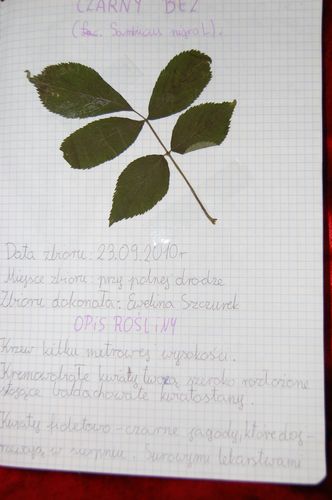 CZARNY BEZ
(łac. Sambucus nigra L.).
Data zbioru: 23.09.2010r
Miejsce zbioru: przy polnej drodze
Zbioru dokonała: Ewelina Szczurek
OPIS ROŚLINY
Krzew kilku metrowej wysokości.
Kremowobiałe kwiaty tworzą szeroko rozłożone
stojące baldachowate kwiatostany.
Kwiaty fioletowo-czarne jagody, które doj-
rzewają w sierpniu. Surowymi lekarstwami